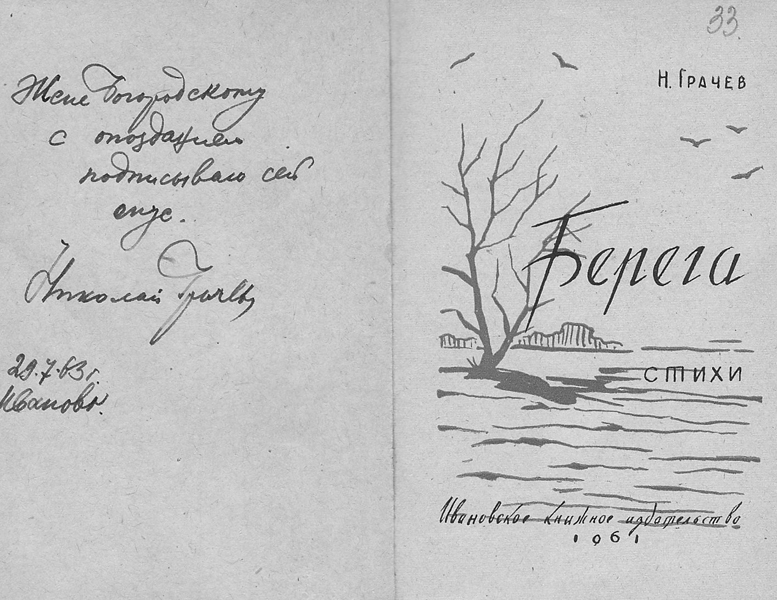 Жене Богородскому
с опозданием
подписываю сей
опус.
Николай Грачев
29.7.63 г.
Иваново.
33.
Н. ГРАЧЕВ
Берега
СТИХИ
Ивановское книжное издательство
1961